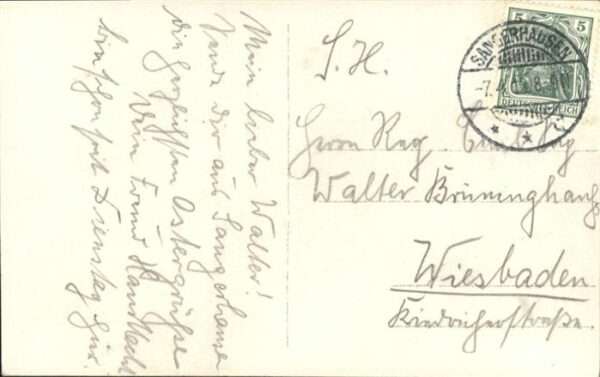 Mein lieber Walter!
Sende dir aus Sangerhausen
die herzlichsten Ostergrüße
Dein Freund Hans
bin schon seit Dienstag hier.
S. H.
Herrn Reg.
Walter Brüninghaus
Wiesbaden
Kiedricherstraße.
5 5
SANGERHAUSEN
-7.4.
DEUTSCHES REICH